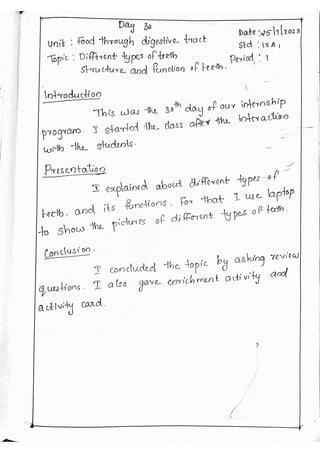 Day 30
Date : 25/7/2023
Unit : Food through digestive tract
Std : IX A,
Topic : Different types of teeth
Period : 1
Structure and function of teeth.
Introduction
This was the 30th day of our internship
program. I started the class after the interaction
with the students.
Presentation
I explained about different types of
teeth. and its functions. For that I use laptop
to show the pictures of different types of teeth.
Conclusion.
I concluded the topic by asking review
questions. I also gave enrichment activity and
activity card.